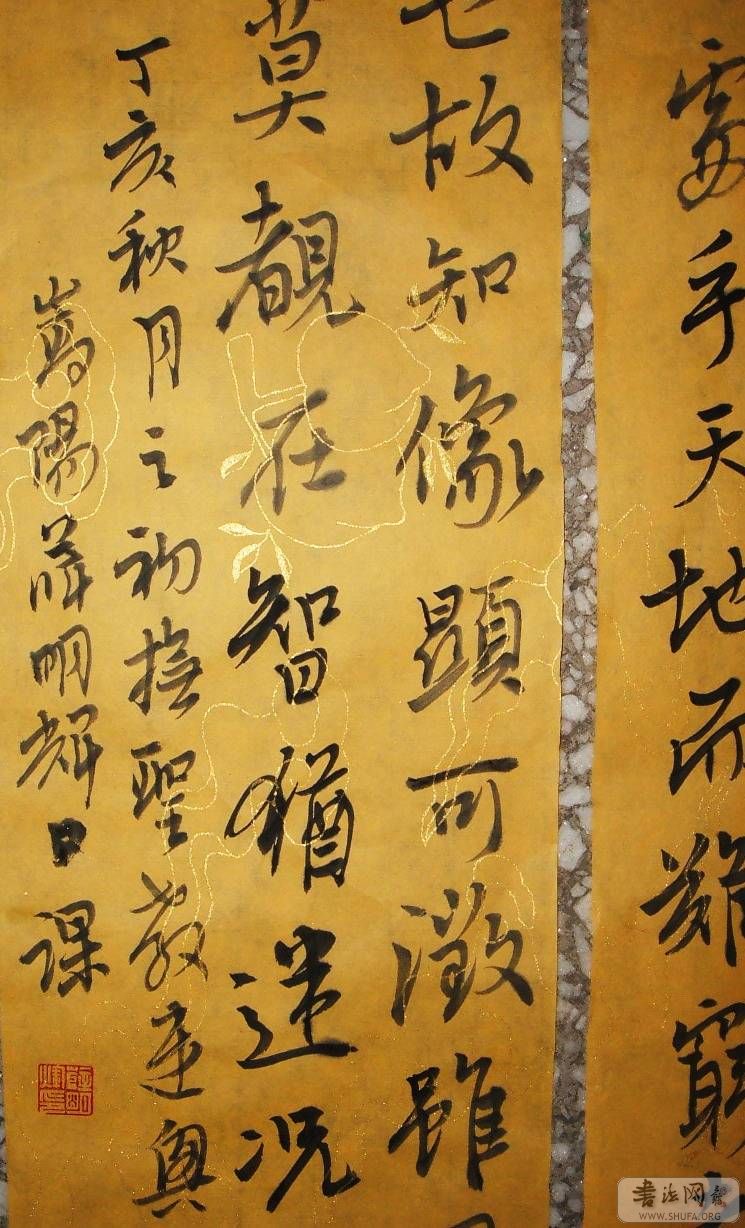 處乎天地而難窮
也故知像顯可徵雖
莫覩在智猶迷況
丁亥秋月之初撫聖教
嵩陽薛明輝日課
书法网
WWW.SHUFA.ORG